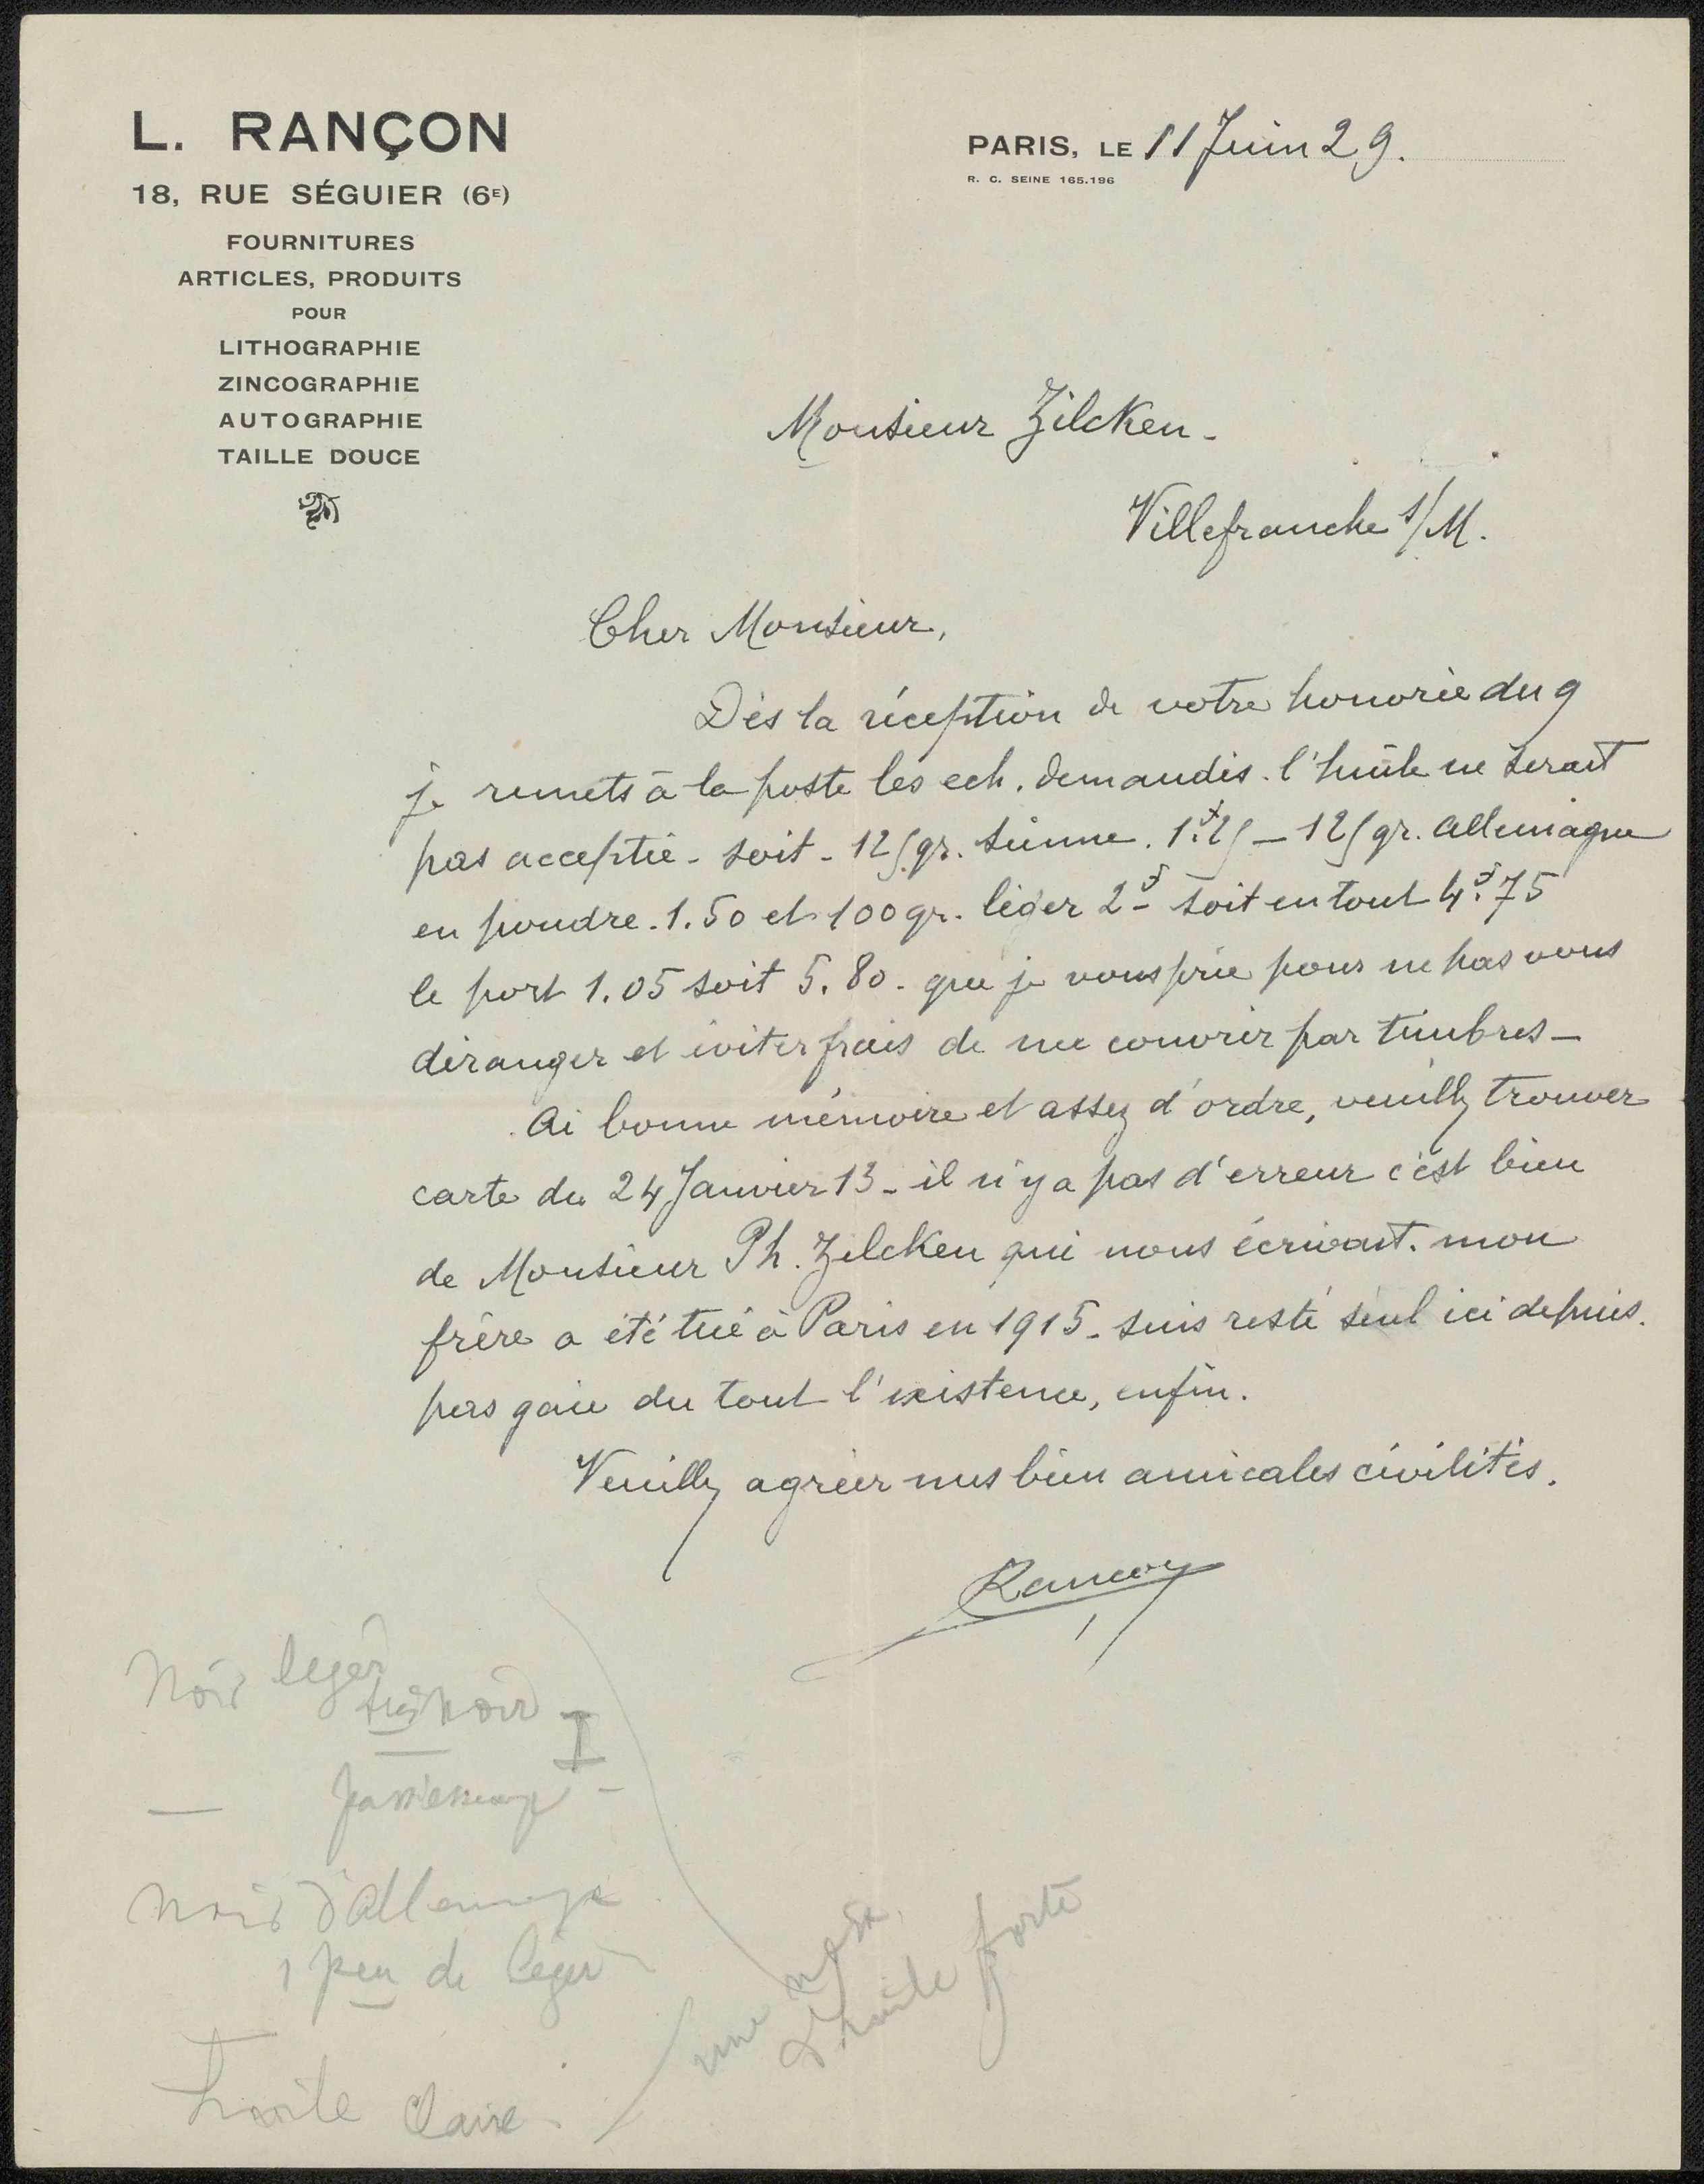 L. RANÇON
18, RUE SÉGUIER (6E)
FOURNITURES
ARTICLES, PRODUITS
POUR
LITHOGRAPHIE
ZINCOGRAPHIE
AUTOGRAPHIE
TAILLE DOUCE
PARIS, LE 11 Juin 29.
R. C. SEINE 165.196
Monsieur Zilcken.
Villefranche s/M.
Cher Monsieur,
Dès la réception de votre honorée du 9
je remets à la poste les ech. demandés. l'huile ne serait
pas acceptée. soit. 125 gr. 1.f25 _ 125 gr. allemagne
en poudre. 1.50 et 100 gr. léger 2f_ soit en tout 4f.75
le port 1.05 soit 5.80. que je vous prie pour ne pas vous
déranger et éviter frais de me couvrir par timbres _
Ai bonne mémoire et assez d'ordre, veuillez trouver
carte du 24 Janvier 13 _ il n'y a pas d'erreur c'est bien
de Monsieur Ph. Zilcken qui nous écrivait. mon
frère a été tué à Paris en 1915 _ suis resté seul ici depuis.
pas gaie du tout l'existence, enfin.
Veuillez agréer mes bien amicales civilités.
Rançon
Noir léger
très noir
I
Noir d'Allemagne
1 peu de léger
huile claire
une
d'huile forte